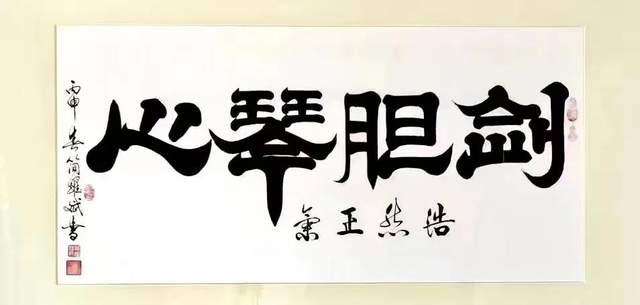 剑胆琴心
浩然正氣
丙申春简耀斌書